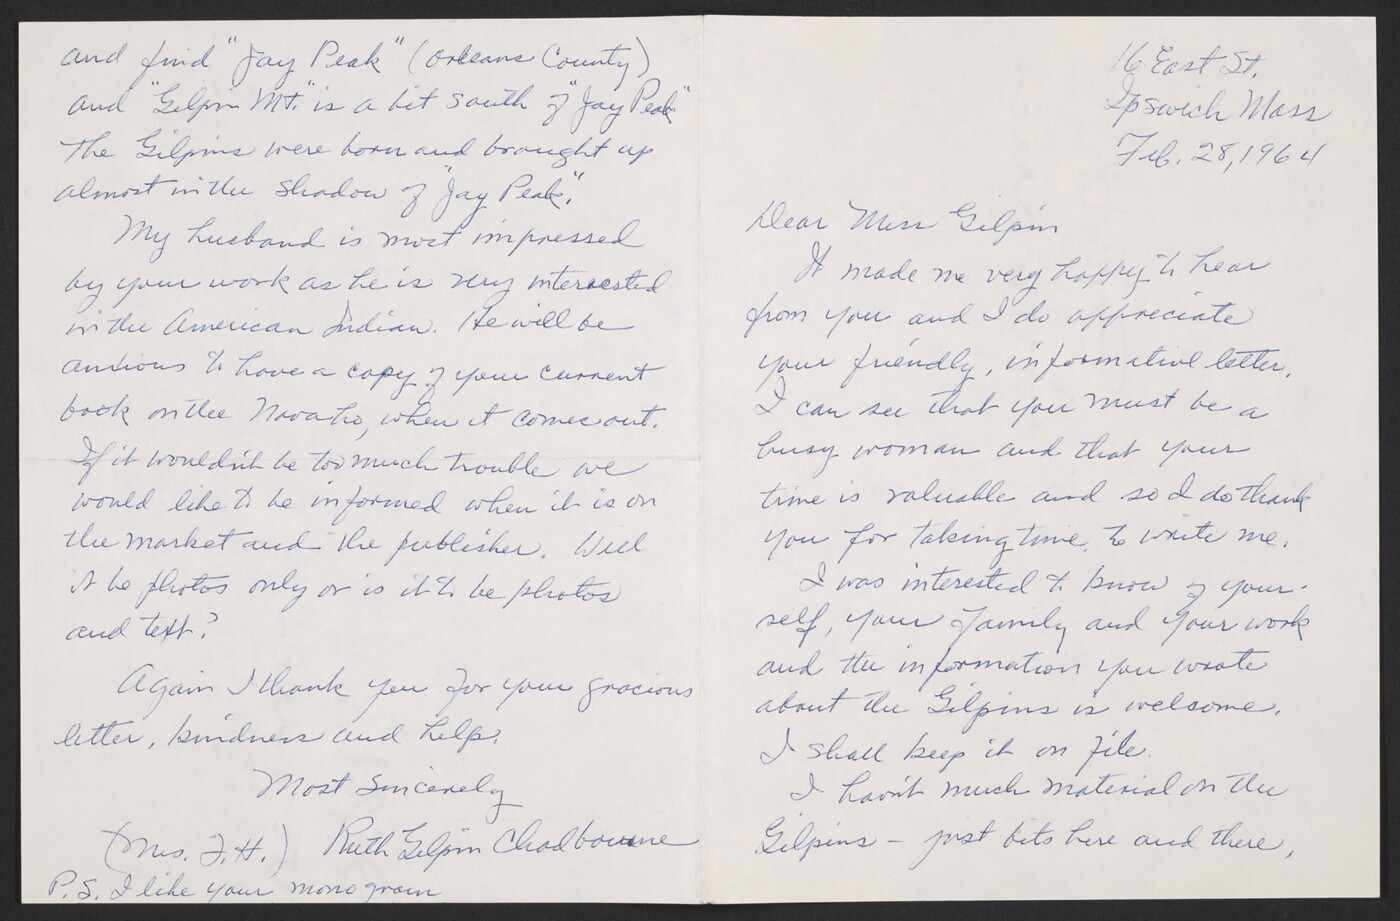 16 East St.
Ipswich Mass
Feb. 28, 1964
Dear Miss Gilpin
It made me very happy to hear
from you and I do appreciate
your friendly, informative letter.
I can see that you must be a
busy woman and that your
time is valuable and so I do thank
you for taking time to write me.
I was interested to know of your-
self, your family and your work
and the information you wrote
about the Gilpins is welcome.
I shall keep it on file.
I havn't much material on the
Gilpins – just bits here and there,
and find "Jay Peak" (Orleans County)
and "Gilpin Mt." is a bit south of "Jay Peak"
The Gilpins were born and brought up
almost in the shadow of "Jay Peak".
My husband is most impressed
by your work as he is very interested
in the American Indian. He will be
anxious to have a copy of your current
book on the Navaho, when it comes out.
If it wouldn't be too much trouble we
would like to be informed when it is on
the market and the publisher. Will
it be photos only or is it to be photos
and text?
Again I thank you for your gracious
letter, kindness and help.
Most Sincerely
(Mrs. F. H.) Ruth Gilpin Chadbourne
P.S. I like your monogram